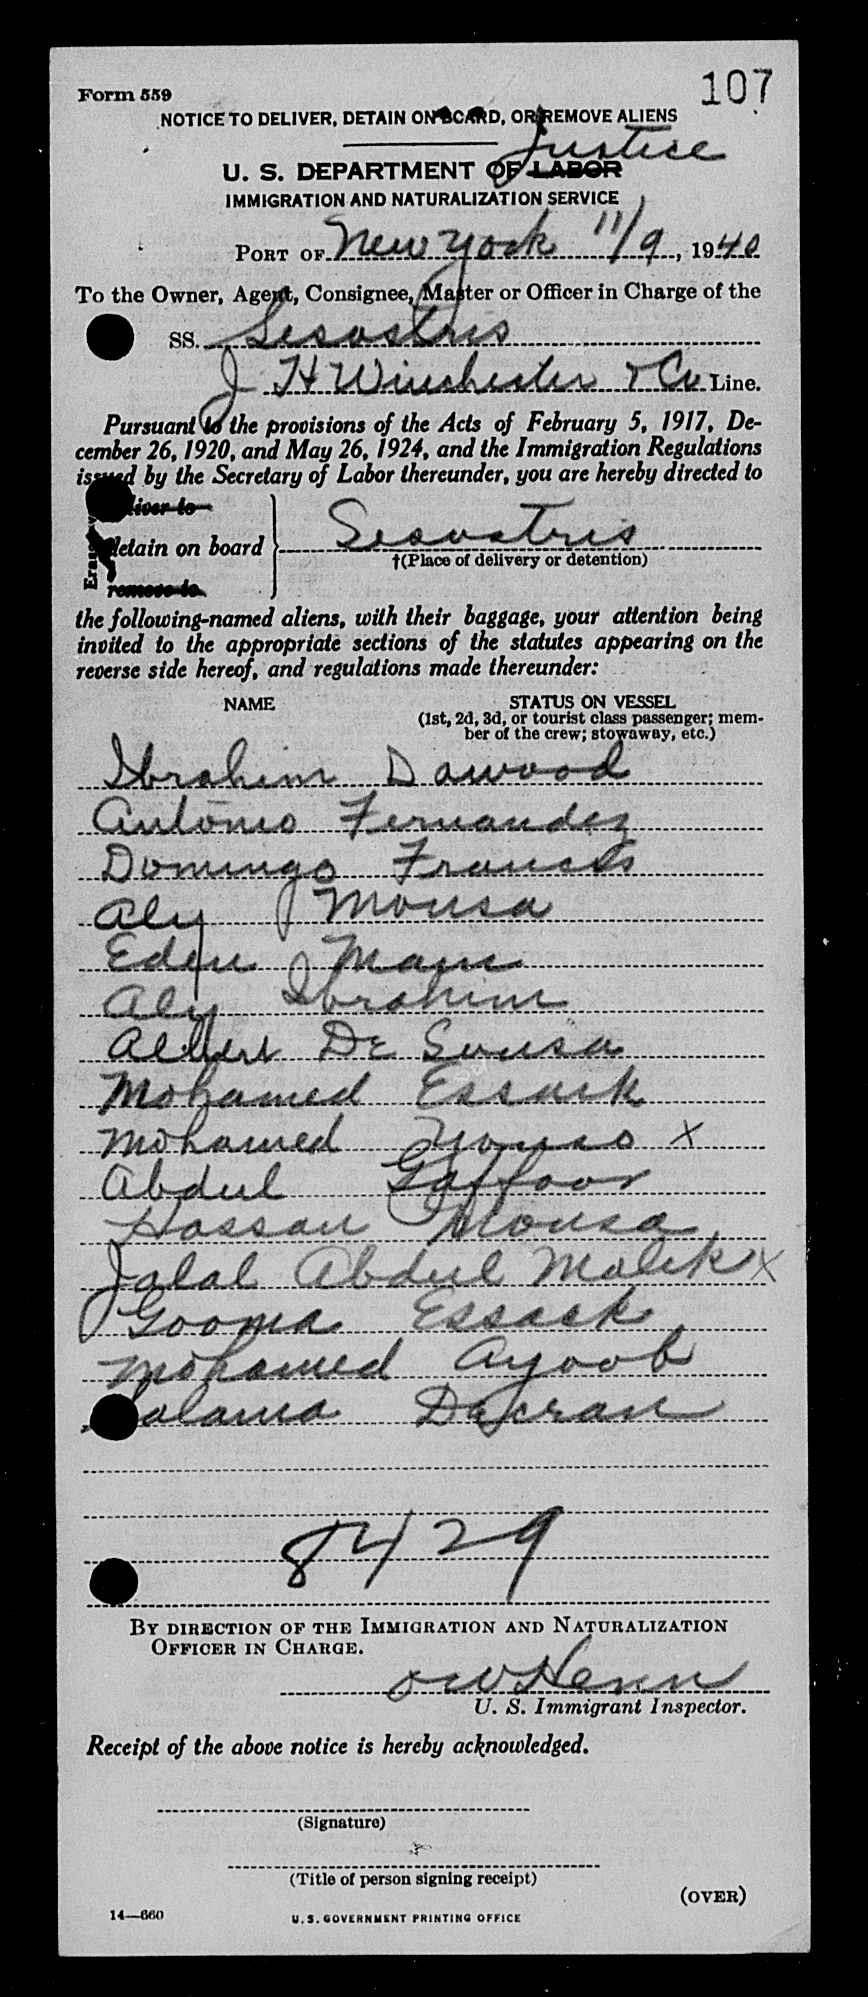 107
Form 559
NOTICE TO DELIVER, DETAIN ON BOARD, OR REMOVE ALIENS
Justice
U. S. DEPARTMENT OF LABOR
IMMIGRATION AND NATURALIZATION SERVICE
PORT OF New York 11/9, 1940
To the Owner, Agent, Consignee, Master or Officer in Charge of the
SS. Sesostris
J H Winchester & Co Line.
Pursuant to the provisions of the Acts of February 5, 1917, De-
cember 26, 1920, and May 26, 1924, and the Immigration Regulations
issued by the Secretary of Labor thereunder, you are hereby directed to
deliver to
detain on board Sesostris
†(Place of delivery or detention)
remove to
the following-named aliens, with their baggage, your attention being
invited to the appropriate sections of the statutes appearing on the
reverse side hereof, and regulations made thereunder:
NAME STATUS ON VESSEL
(1st, 2d, 3d, or tourist class passenger; mem-
ber of the crew; stowaway, etc.)
Ibrahim Dawood
Antonio Fernandez
Domingo Francis
Aly Mousa
Eden Mam
Aly Ibrahim
Albert De Sousa
Mohamed Essack
Mohamed Younso x
Abdul Gaffoor
Hassan Mousa
Jalal Abdul Malek x
Gooma Essack
Mohamed Ayoob
alama
8429
BY DIRECTION OF THE IMMIGRATION AND NATURALIZATION
OFFICER IN CHARGE.
OW Henn
U. S. Immigrant Inspector.
Receipt of the above notice is hereby acknowledged.
(Signature)
(Title of person signing receipt)
(OVER)
14—660 U. S. GOVERNMENT PRINTING OFFICE